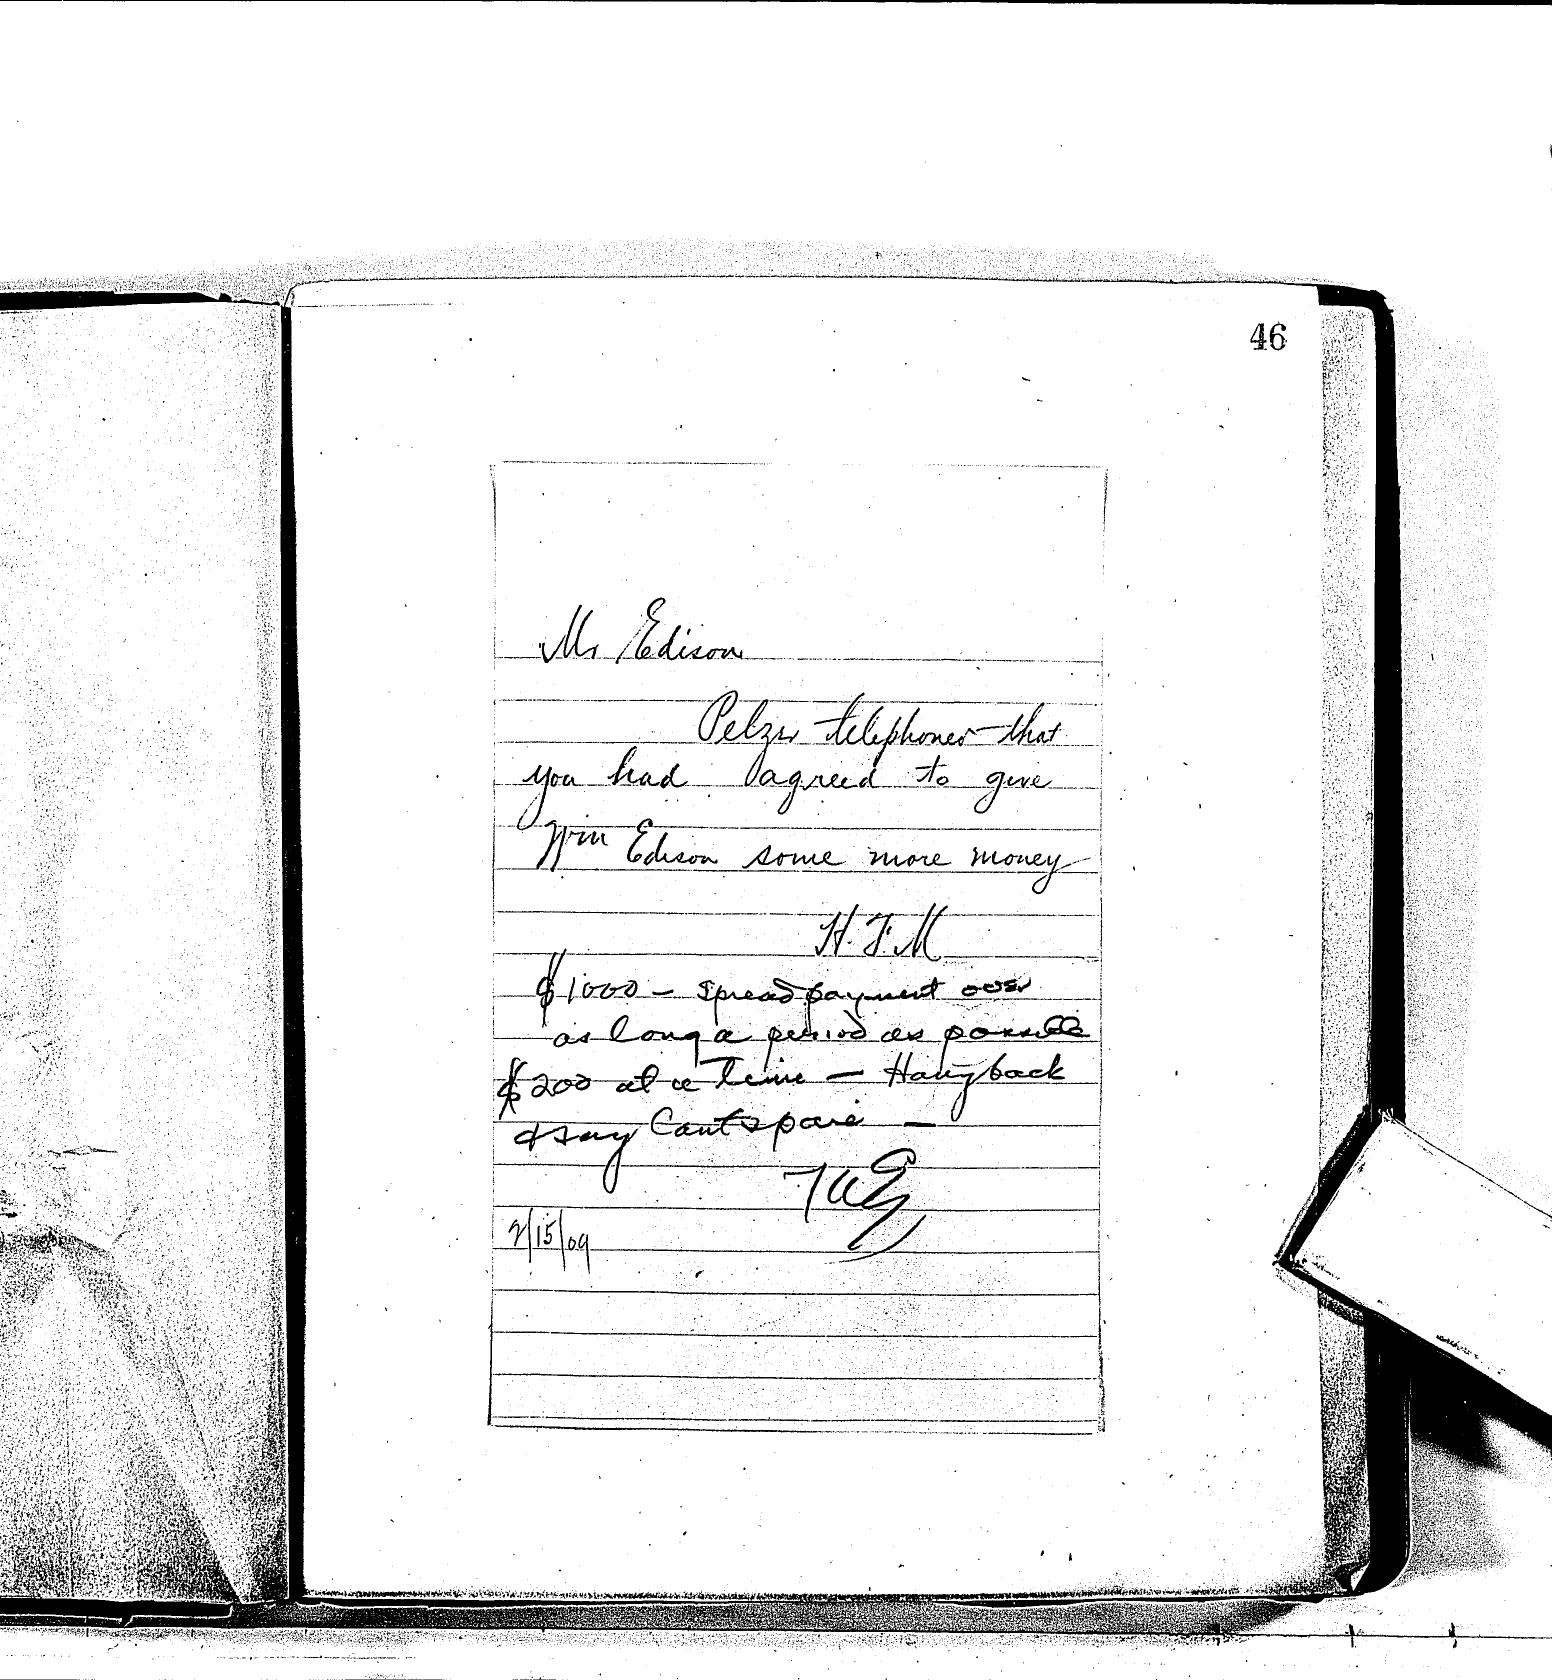 46
Mr Edison
Pelzer telephones that
you had agreed to give
Wm Edison some more money
H.F.M
$1000 - spread payment over
as long a period as possible
$200 at a time - Hang back
& say Cant spare -
TAE
2/15/09